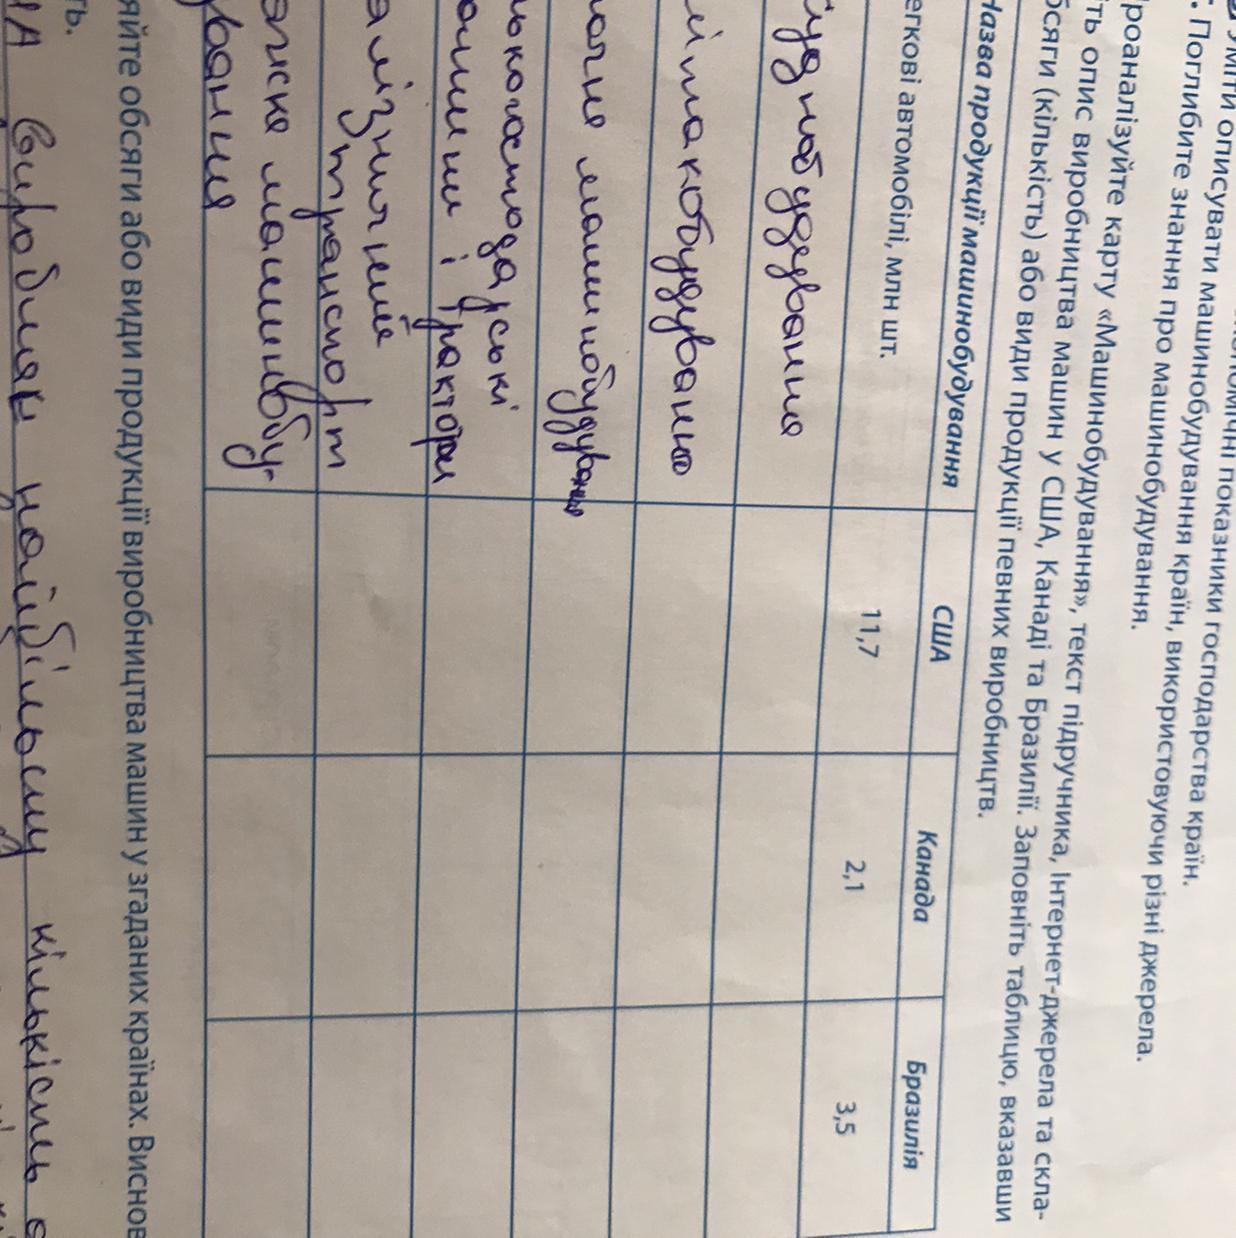 Уміти описувати машинобудування країн, використовуючи різні джерела.
показники господарства країн.
Поглибите знання про машинобудування.
роаналізуйте карту «Машинобудування», текст підручника, Інтернет-джерела та скла-
іть опис виробництва машин у США, Канаді та Бразилії. Заповніть таблицю, вказавши
бсяги (кількість) або види продукції певних виробництв.
Назва продукції машинобудування США Канада Бразилія
егкові автомобілі, млн шт. 11,7 2,1 3,5
уднобудування
літакобудування
машинобудування
ськогосподарські
і трактори
алізничний
транспорт
машинобу-
дування
яйте обсяги або види продукції виробництва машин у згаданих країнах. Виснов
ть.
ША виробляє найбільшу кількість